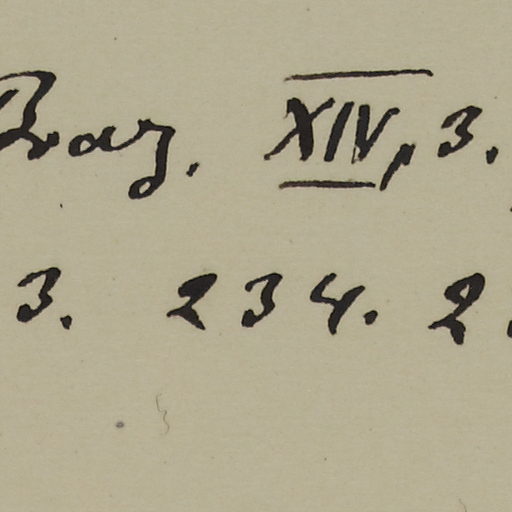 Braz. XIV, 3.
3. 234. 2